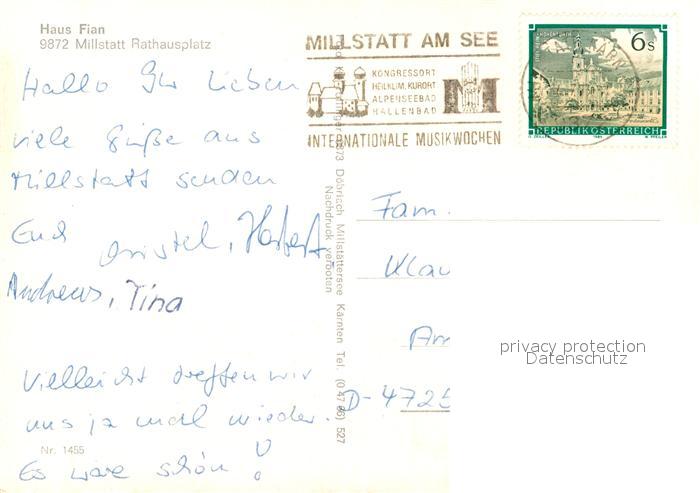 Haus Fian
9872 Millstatt Rathausplatz
Hallo Ihr Lieben
viele Grüße aus
Millstatt senden
Euch Christel, Herbert,
Andreas, Tina
Vielleicht treffen wir
uns ja mal wieder.
Es wäre schön!
Nr. 1455
9873 Döbriach Millstättersee Kärnten Tel. (04766) 527
Nachdruck verboten
MILLSTATT AM SEE
KONGRESSORT
HEILKLIM. KURORT
ALPENSEEBAD
HALLENBAD
INTERNATIONALE MUSIKWOCHEN
6s
REPUBLIK ÖSTERREICH
Fam.
Klau
Am
D-4725
privacy protection
Datenschutz